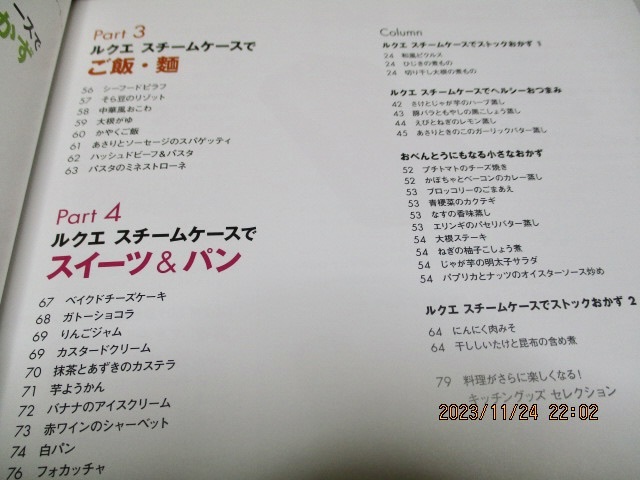 Part 3
ルクエ スチームケースで
ご飯・麺
56 シーフードピラフ
57 そら豆のリゾット
58 中華風おこわ
59 大根がゆ
60 かやくご飯
61 あさりとソーセージのスパゲッティ
62 ハッシュドビーフ&パスタ
63 パスタのミネストローネ
Part 4
ルクエ スチームケースで
スイーツ&パン
67 ベイクドチーズケーキ
68 ガトーショコラ
69 りんごジャム
69 カスタードクリーム
70 抹茶とあずきのカステラ
71 芋ようかん
72 バナナのアイスクリーム
73 赤ワインのシャーベット
74 白パン
76 フォカッチャ
Column
ルクエ スチームケースでストックおかず 1
24 和風ピクルス
24 ひじきの煮もの
24 切り干し大根の煮もの
ルクエ スチームケースでヘルシーおつまみ
42 さけとじゃが芋のハーブ蒸し
43 豚バラともやしの黒こしょう蒸し
44 えびとねぎのレモン蒸し
45 あさりときのこのガーリックバター蒸し
おべんとうにもなる小さなおかず
52 プチトマトのチーズ焼き
52 かぼちゃとベーコンのカレー蒸し
53 ブロッコリーのごまあえ
53 青梗菜のカクテギ
53 なすの香味蒸し
53 エリンギのパセリバター蒸し
54 大根ステーキ
54 ねぎの柚子こしょう煮
54 じゃが芋の明太子サラダ
54 パプリカとナッツのオイスターソース炒め
ルクエ スチームケースでストックおかず 2
64 にんにく肉みそ
64 干ししいたけと昆布の含め煮
79 料理がさらに楽しくなる!
キッチングッズ セレクション
2023/11/24 22:02